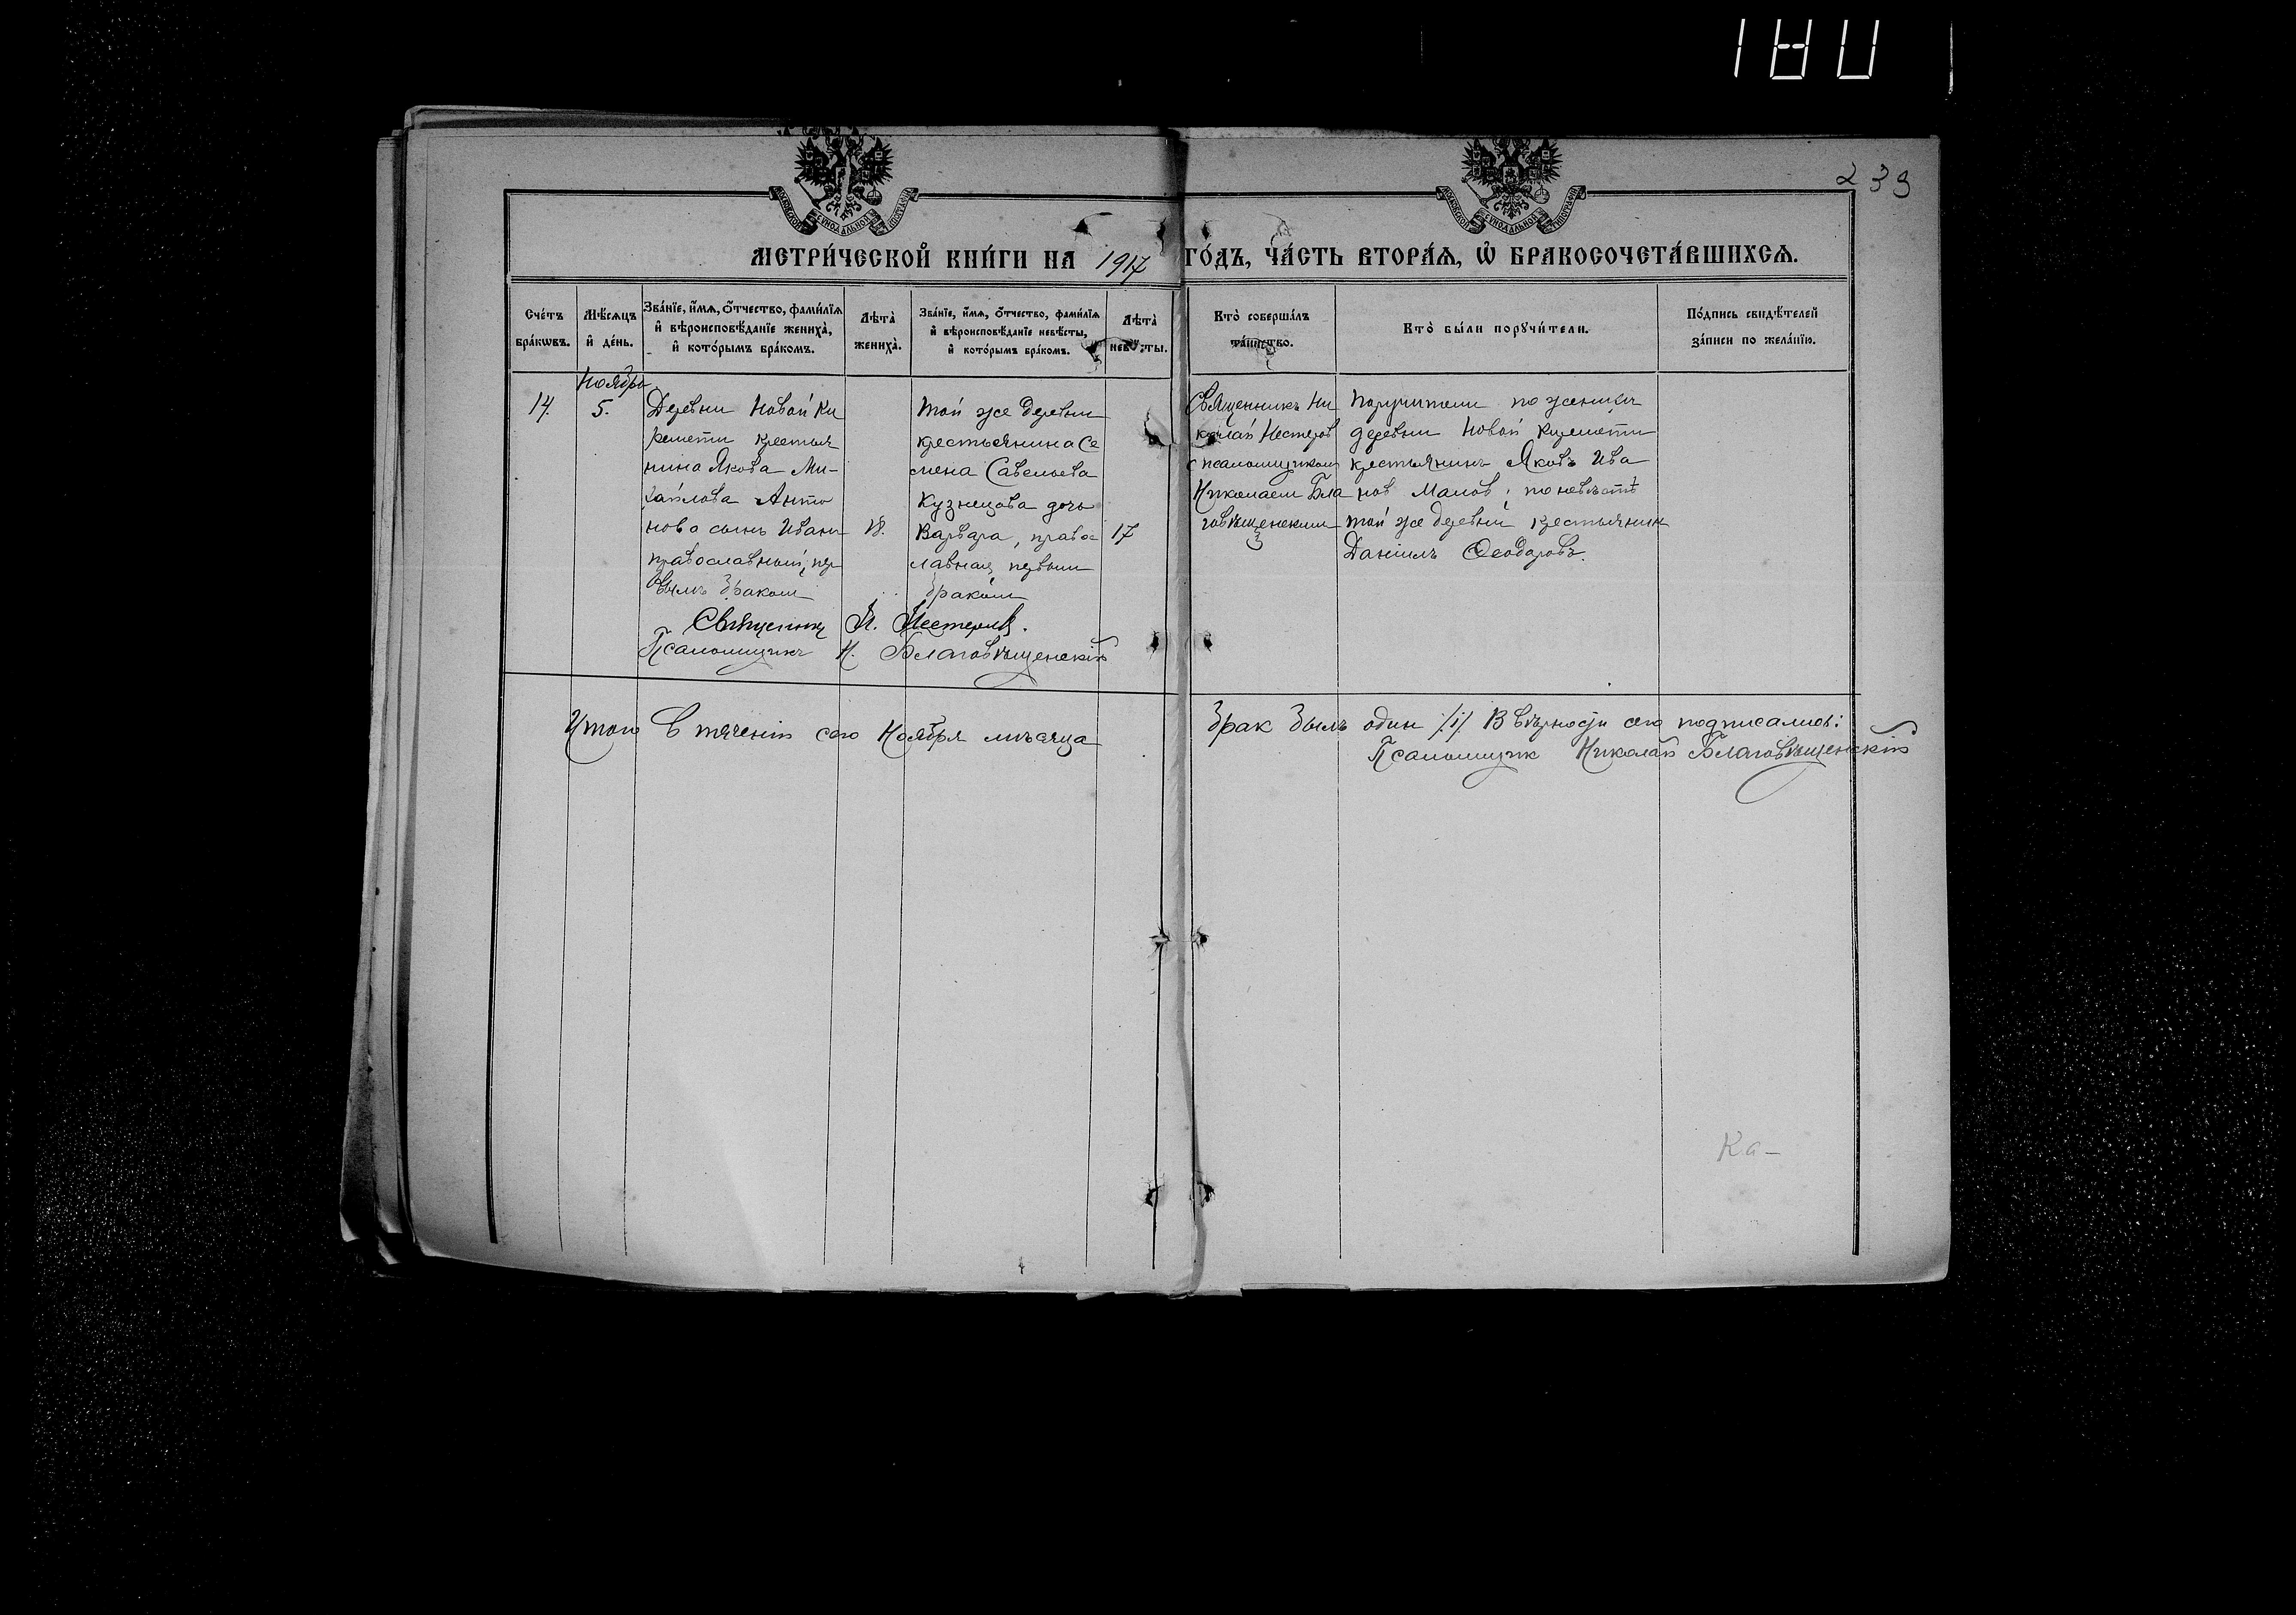 180
239
МОСКОВСКОЙ СѴНОДАЛЬНОЙ ТИПОГРАФІИ
МОСКОВСКОЙ СѴНОДАЛЬНОЙ ТИПОГРАФІИ
МЕТРИ́ЧЕСКОЙ КНИ́ГИ НА 1917 ГО́ДЪ, ЧА́СТЬ ВТОРА́Ѧ, Ѡ҆ БРАКОСОЧЕТА́ВШИХСѦ.
Сче́тъ
бра́кѡвъ.
Мѣ́сѧцъ
и҆ де́нь.
Зва́нїе, и҆́мѧ, ѻ҆́тчество, фами́лїѧ
и҆ вѣроисповѣ́данїе жениха̀,
и҆ кото́рымъ бра́комъ.
Лѣта̀
жениха̀.
Зва́нїе, и҆́мѧ, ѻ҆́тчество, фами́лїѧ
и҆ вѣроисповѣ́данїе невѣ́сты,
и҆ кото́рымъ бра́комъ.
Лѣта̀
невѣ́сты.
Кто̀ соверша́лъ
та́инство.
Кто̀ бы́ли порꙋчи́тели.
По́дпись свидѣ́телей
за́писи по жела́нїю.
14.
Ноября
5.
Деревни Новой Ки
ремети крестья
нина Якова Ми-
хайлова Анто
нова сынъ Иванъ
православный, пер
вымъ бракомъ
18.
Той же деревни
крестьянина Се
мена Савельева
Кузнецова дочь
Варвара, правос
лавная, первым
браком
17
Священникъ Ни
колай Нестеров
с псаломщиком
Николаем Бла
говѣщенским
Поручители по женихѣ
деревни Новой Киремети
крестьянинъ Яковъ Ива
нов Малов; по невѣстѣ
той же деревни крестьянин
Даніилъ Ѳеодоровъ.
Священник Н. Нестеров.
Псаломщикъ Н. Благовѣщенскій
Итого в теченіи сего Ноября мѣсяца брак былъ один /1/ В вѣрности сего подписались:
Псаломщик Николай Благовѣщенскій
Ка-